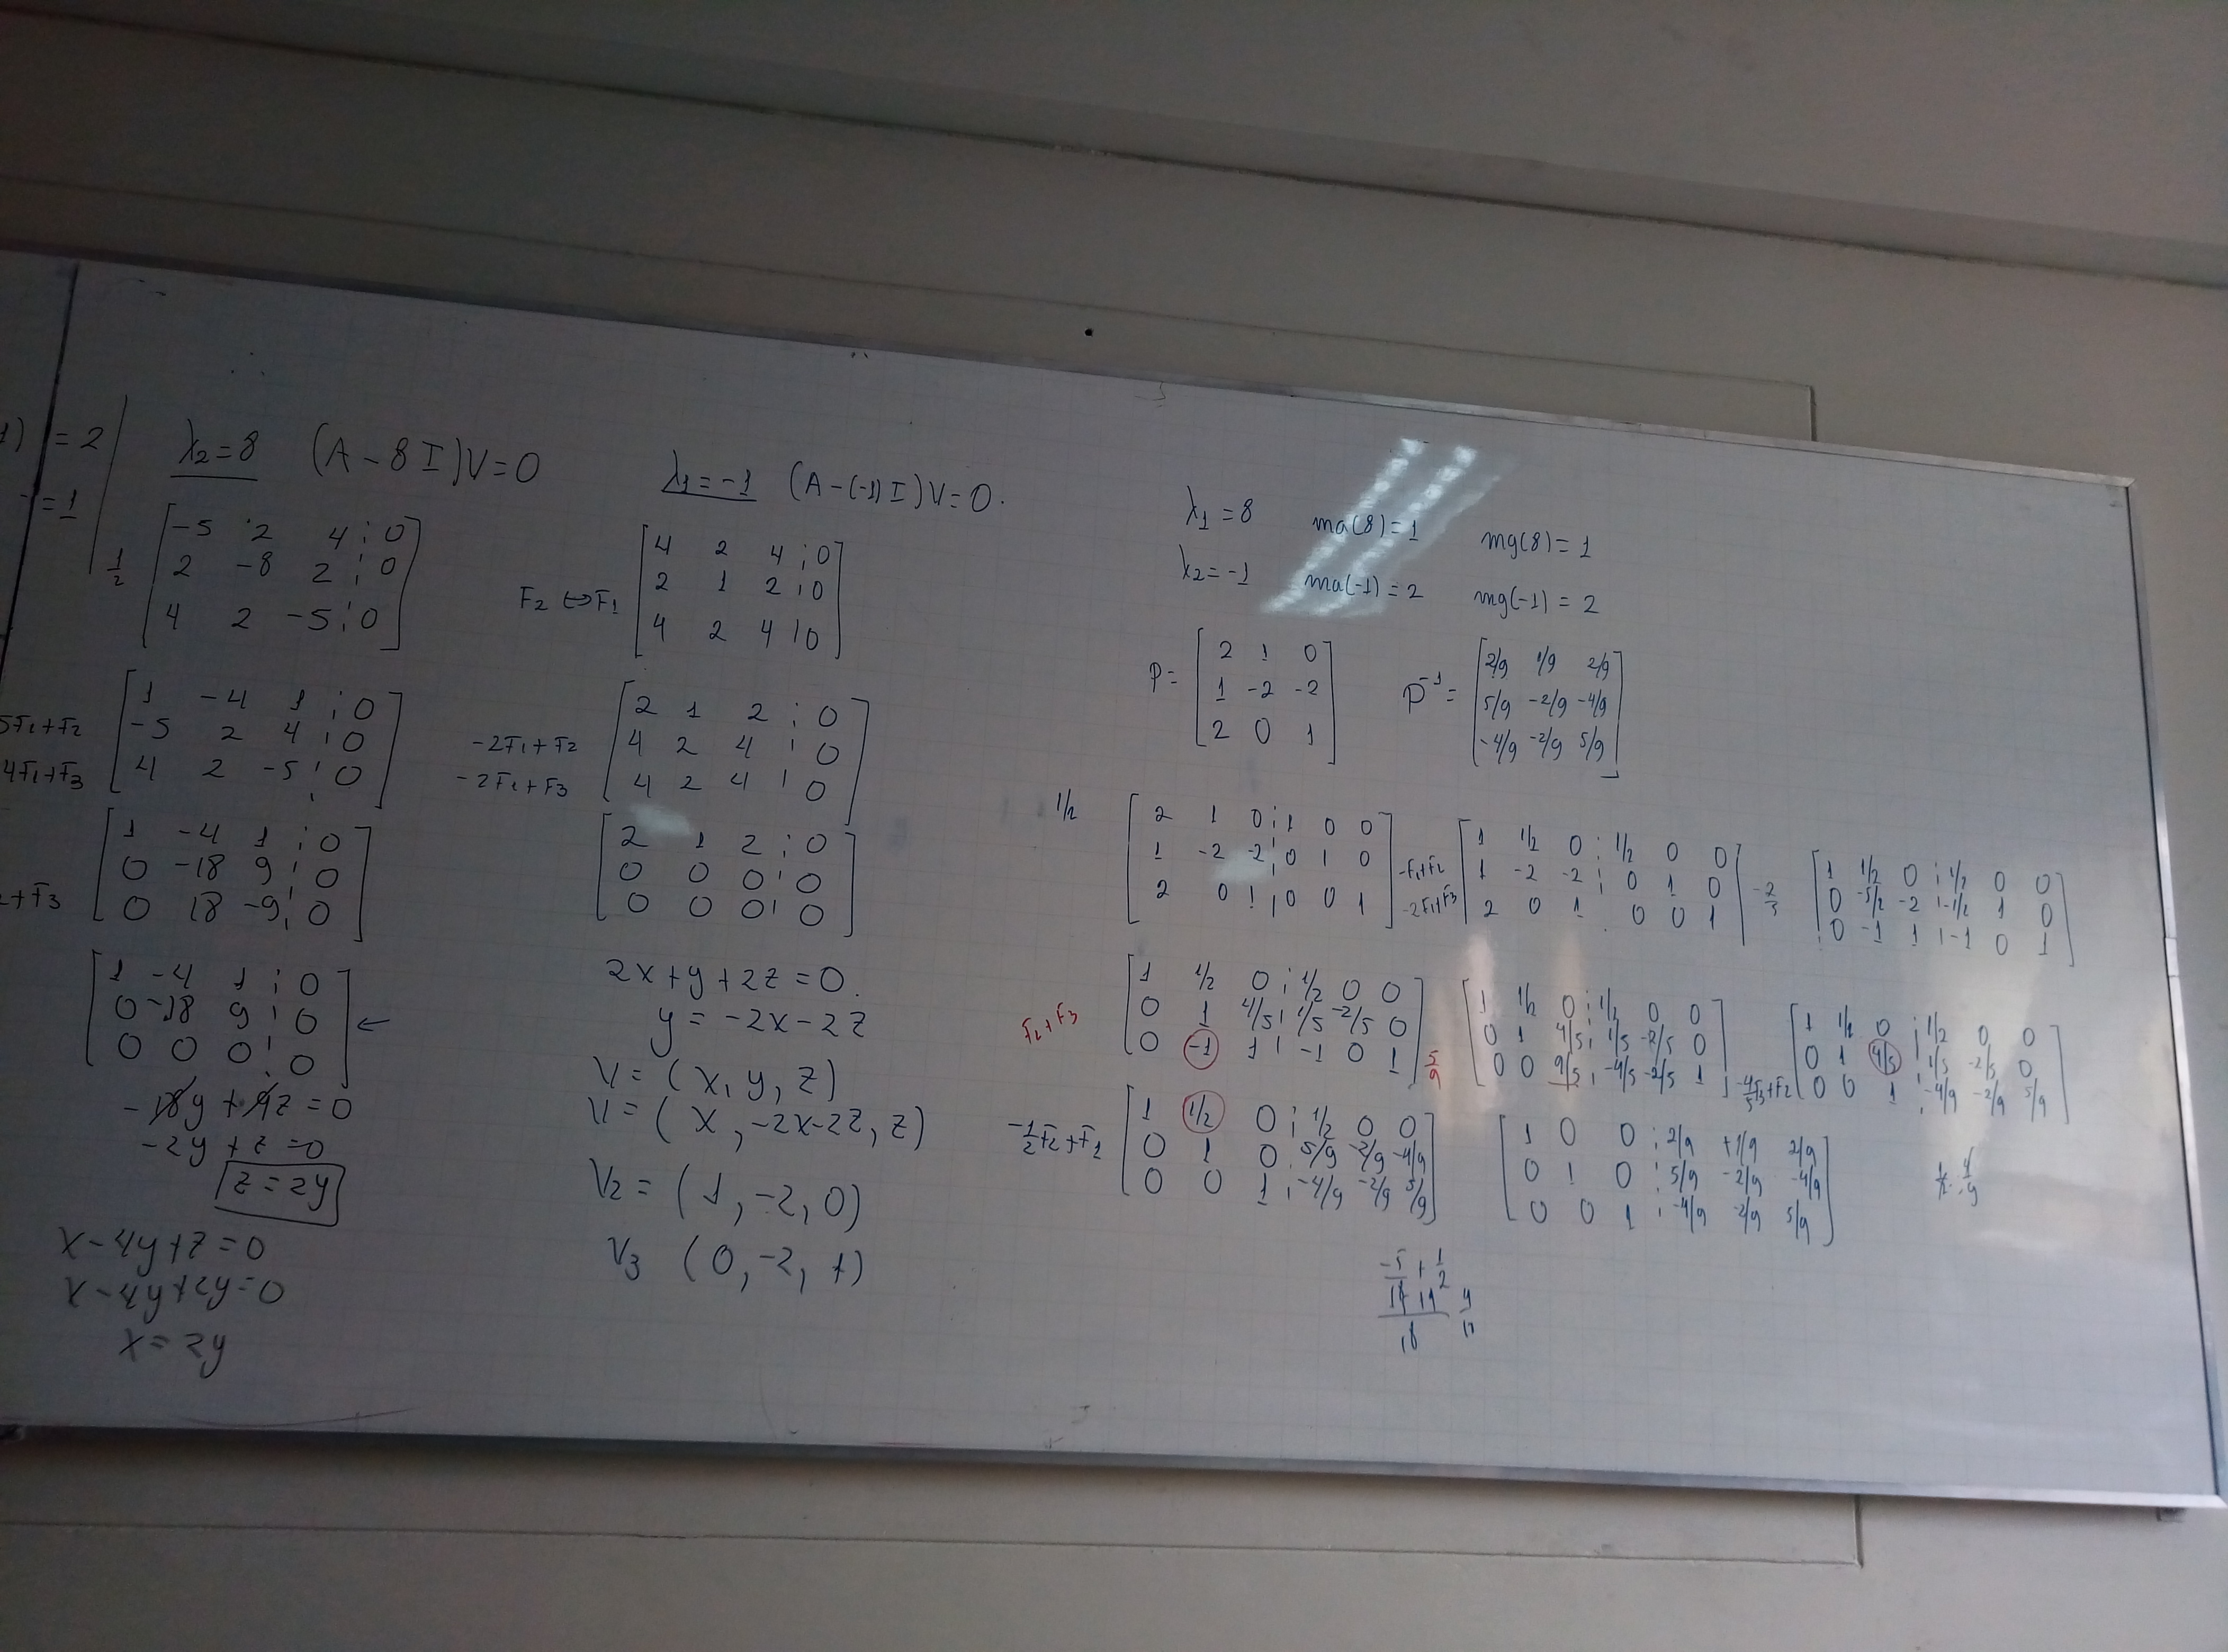 1) = 2
= 1
λ₂ = 8 (A - 8I)V = 0
1/2
[-5 2 4 ¦ 0]
[2 -8 2 ¦ 0]
[4 2 -5 ¦ 0]
5F₁+F₂
4F₁+F₃
[1 -4 1 ¦ 0]
[-5 2 4 ¦ 0]
[4 2 -5 ¦ 0]
+F₃
[1 -4 1 ¦ 0]
[0 -18 9 ¦ 0]
[0 18 -9 ¦ 0]
[1 -4 1 ¦ 0]
[0 -18 9 ¦ 0] ←
[0 0 0 ¦ 0]
-18y + 9z = 0
-2y + z = 0
z = 2y
x - 4y + z = 0
x - 4y + 2y = 0
x = 2y
λ₁ = -1 (A - (-1)I)V = 0.
F₂ ↔ F₁
[4 2 4 ¦ 0]
[2 1 2 ¦ 0]
[4 2 4 ¦ 0]
-2F₁+F₂
-2F₁+F₃
[2 1 2 ¦ 0]
[4 2 4 ¦ 0]
[4 2 4 ¦ 0]
[2 1 2 ¦ 0]
[0 0 0 ¦ 0]
[0 0 0 ¦ 0]
2x + y + 2z = 0.
y = -2x - 2z
V = (x, y, z)
V = (x, -2x-2z, z)
V₂ = (1, -2, 0)
V₃ (0, -2, 1)
λ₁ = 8 ma(8) = 1 mg(8) = 1
λ₂ = -1 ma(-1) = 2 mg(-1) = 2
P =
[2 1 0]
[1 -2 -2]
[2 0 1]
P⁻¹ =
[2/9 1/9 2/9]
[5/9 -2/9 -4/9]
[-4/9 -2/9 5/9]
1/2
[2 1 0 ¦ 1 0 0]
[1 -2 -2 ¦ 0 1 0]
[2 0 1 ¦ 0 0 1]
-F₁+F₂
-2F₁+F₃
[1 1/2 0 ¦ 1/2 0 0]
[1 -2 -2 ¦ 0 1 0]
[2 0 1 0 0 1]
-2/5
[1 1/2 0 ¦ 1/2 0 0]
[0 -5/2 -2 ¦ -1/2 1 0]
[0 -1 1 ¦ -1 0 1]
F₂+F₃
[1 1/2 0 ¦ 1/2 0 0]
[0 1 4/5 ¦ 1/5 -2/5 0]
[0 -1 1 ¦ -1 0 1]
5/9
[1 1/2 0 ¦ 1/2 0 0]
[0 1 4/5 ¦ 1/5 -2/5 0]
[0 0 9/5 ¦ -4/5 -2/5 1]
-4/5F₃+F₂
[1 1/2 0 ¦ 1/2 0 0]
[0 1 4/5 ¦ 1/5 -2/5 0]
[0 0 1 ¦ -4/9 -2/9 5/9]
-1/2F₂+F₁
[1 1/2 0 ¦ 1/2 0 0]
[0 1 0 ¦ 5/9 -2/9 -4/9]
[0 0 1 ¦ -4/9 -2/9 5/9]
[1 0 0 ¦ 2/9 +1/9 2/9]
[0 1 0 ¦ 5/9 -2/9 -4/9]
[0 0 1 ¦ -4/9 -2/9 5/9]
-5 + 1/2
18